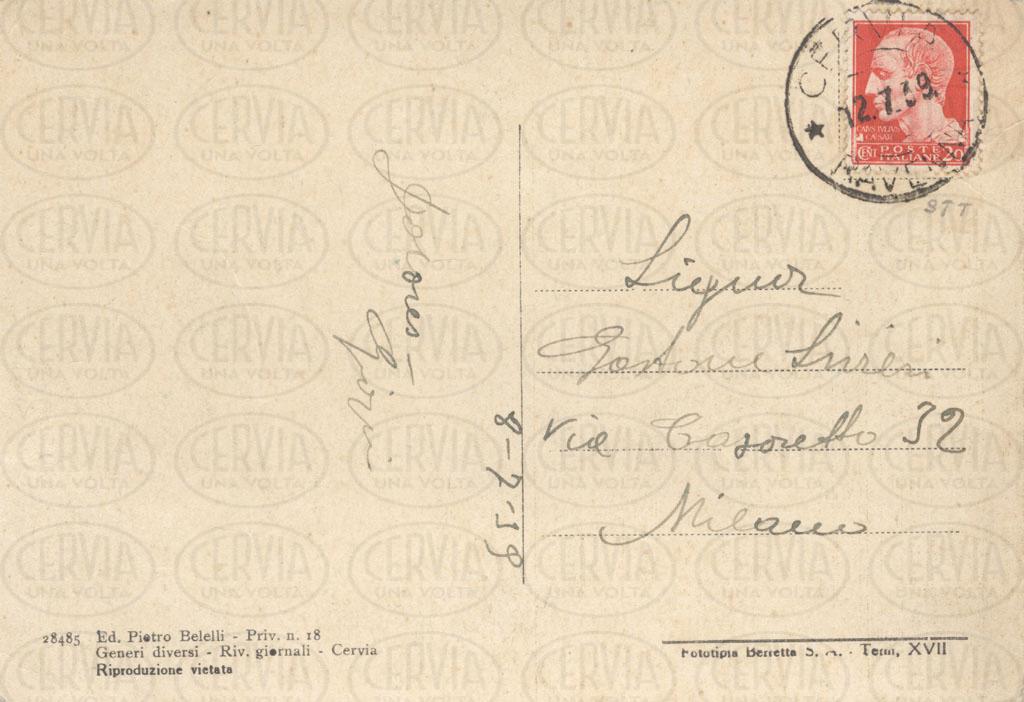 CERVIA
UNA VOLTA
CERVIA
12.7.39.
RAVENNA
CAIVS IVLIVS
CAESAR
CENT POSTE 20
ITALIANE
STT
Dolores -
8-7-39
Signor
Gastone
Via Casoretto 32
Milano
28485 Ed. Pietro Belelli - Priv. n. 18
Generi diversi - Riv. giornali - Cervia
Riproduzione vietata
Fototipia Berretta S. A. - Terni, XVII